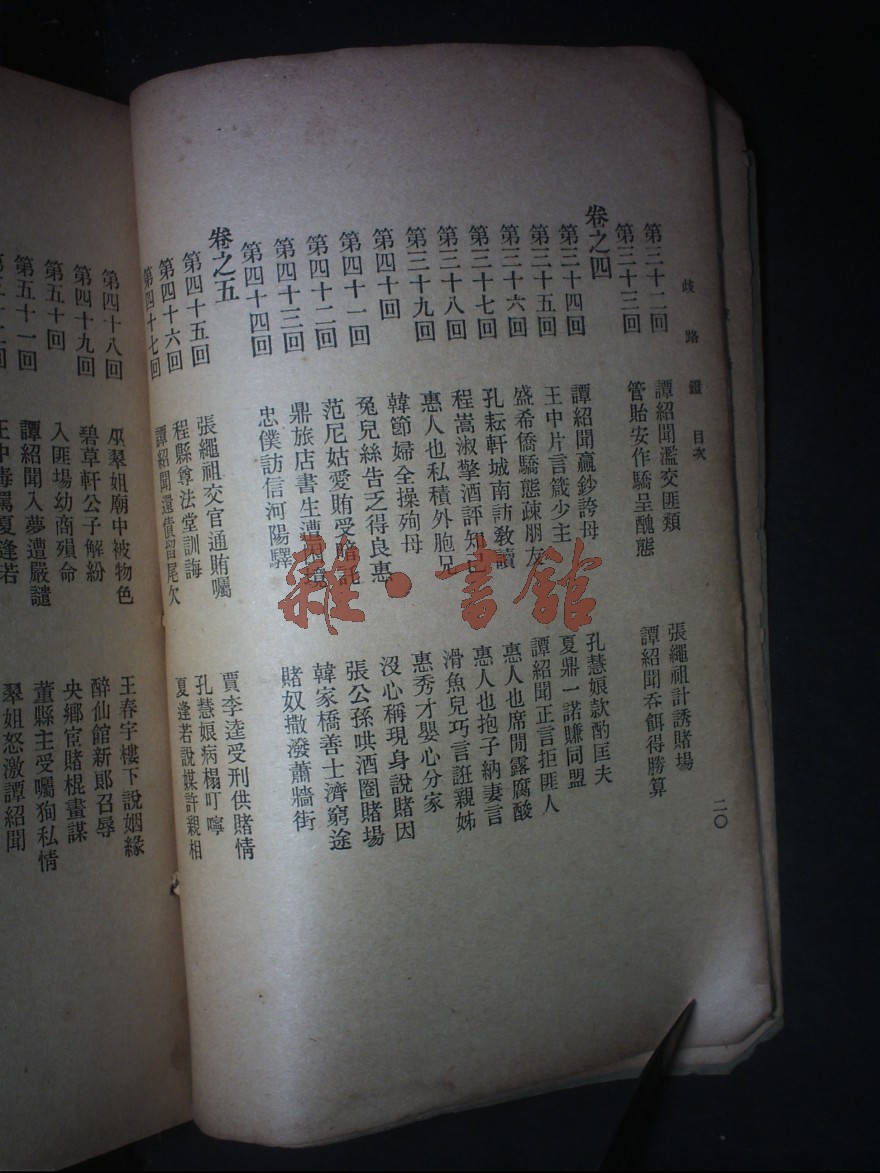 歧路鐙 目次
二〇
第三十二回 譚紹聞濫交匪類 張繩祖計誘賭場
第三十三回 管貽安作驕呈醜態 譚紹聞吞餌得勝算
卷之四
第三十四回 譚紹聞贏鈔誇母 孔慧娘款酌匡夫
第三十五回 王中片言箴少主 夏鼎一諾賺同盟
第三十六回 盛希僑驕態疎朋友 譚紹聞正言拒匪人
第三十七回 孔耘軒城南訪教讀 惠人也席間露腐酸
第三十八回 程嵩淑擎酒評知己 惠人也抱子納妻言
第三十九回 惠人也私積外胞兄 滑魚兒巧言誑親姊
第四十回 韓節婦全操殉母 惠秀才嬰心分家
第四十一回 兔兒絲告乏得良惠 沒心稱現身說賭因
第四十二回 范尼姑愛賄受暗託 張公孫哄酒圈賭場
第四十三回 鼎旅店書生遭 韓家橋善士濟窮途
第四十四回 忠僕訪信河陽驛 賭奴撒潑蕭牆街
卷之五
第四十五回 張繩祖交官通賄囑 賈李逵受刑供賭情
第四十六回 程縣尊法堂訓誨 孔慧娘病榻叮嚀
第四十七回 譚紹聞還債留尾欠 夏逢若說媒許親相
第四十八回 巫翠姐廟中被物色 王春宇樓下說姻緣
第四十九回 碧草軒公子解紛 醉仙館新郎召辱
第五十回 入匪場幼商殞命 央鄉宦賭棍畫謀
第五十一回 譚紹聞入夢遭嚴譴 董縣主受囑狥私情
王中毒罵夏逢若 翠姐怒激譚紹聞
雜·書館